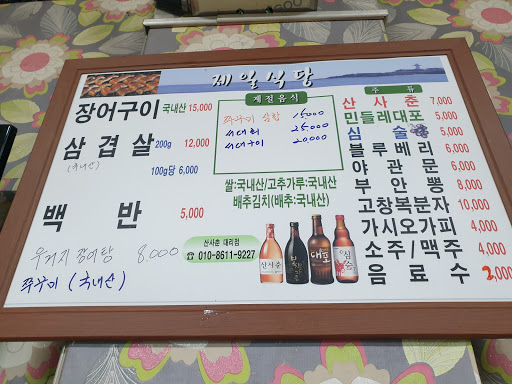 제일식당
장어구이 국내산 15,000
삼겹살 200g 12,000
(국내산) 100g당 6,000
백반 5,000
우거지 장어탕 8,000
쭈꾸미 (국내산)
계절음식
쭈꾸미 삼합 15000
서대회 25,000
서대구이 20,000
쌀:국내산/고추가루:국내산
배추김치(배추:국내산)
산사춘 대리점
☎ 010-8611-9227
산사춘
대포
주 류
산사춘 7,000
민들레대포 5,000
심술 5,000
블루베리 6,000
야관문 6,000
부안뽕 8,000
고창복분자 10,000
가시오가피 4,000
소주/맥주 4,000
음료수 2,000